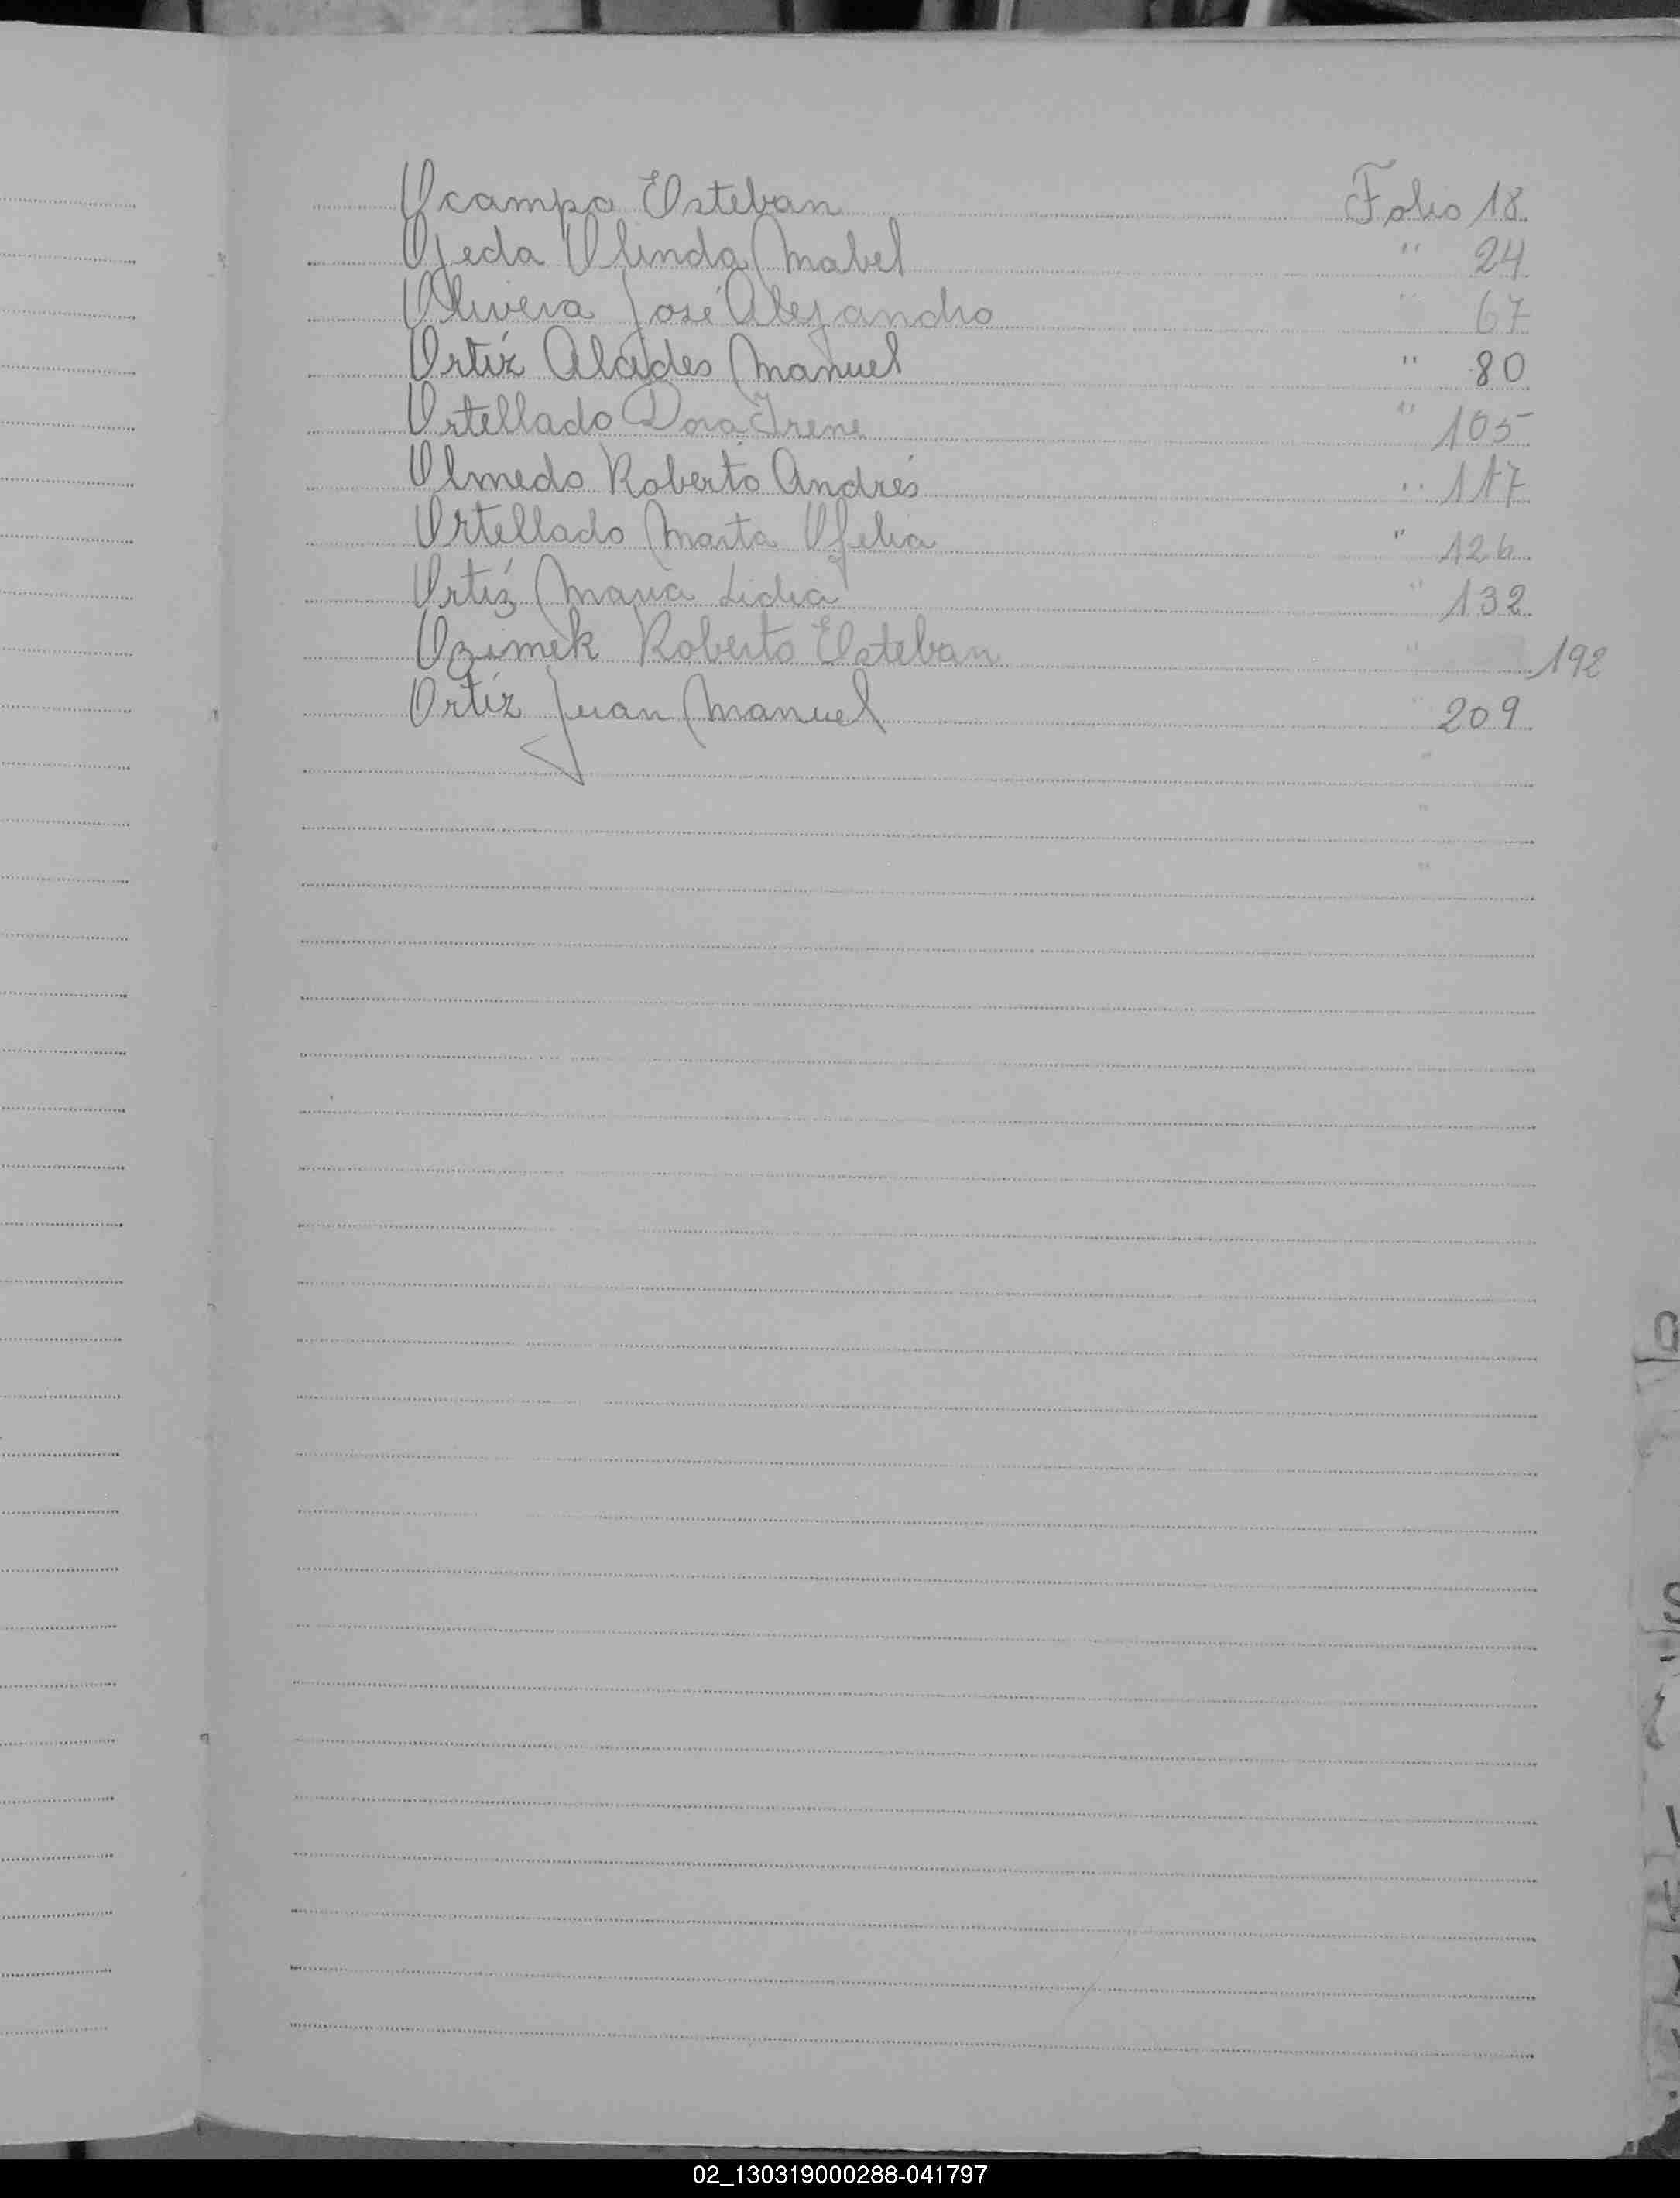 Ocampo Esteban Folio 18
Ojeda Olinda Mabel " 24
Olivera José Alejandro " 67
Ortíz Alcides Manuel " 80
Ortellado Dora Irene " 105
Olmedo Roberto Andrés " 117
Ortellado Marta Ofelia " 126
Ortíz Maria Lidia " 132
Ozimek Roberto Esteban " 192
Ortíz Juan Manuel " 209
"
"
"
02_130319000288-041797